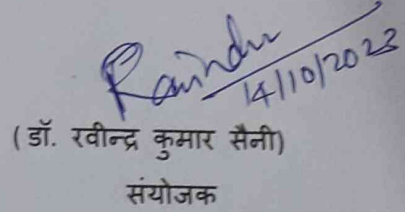 Ravindu
14/10/2023
(डॉ. रवीन्द्र कुमार सैनी)
संयोजक